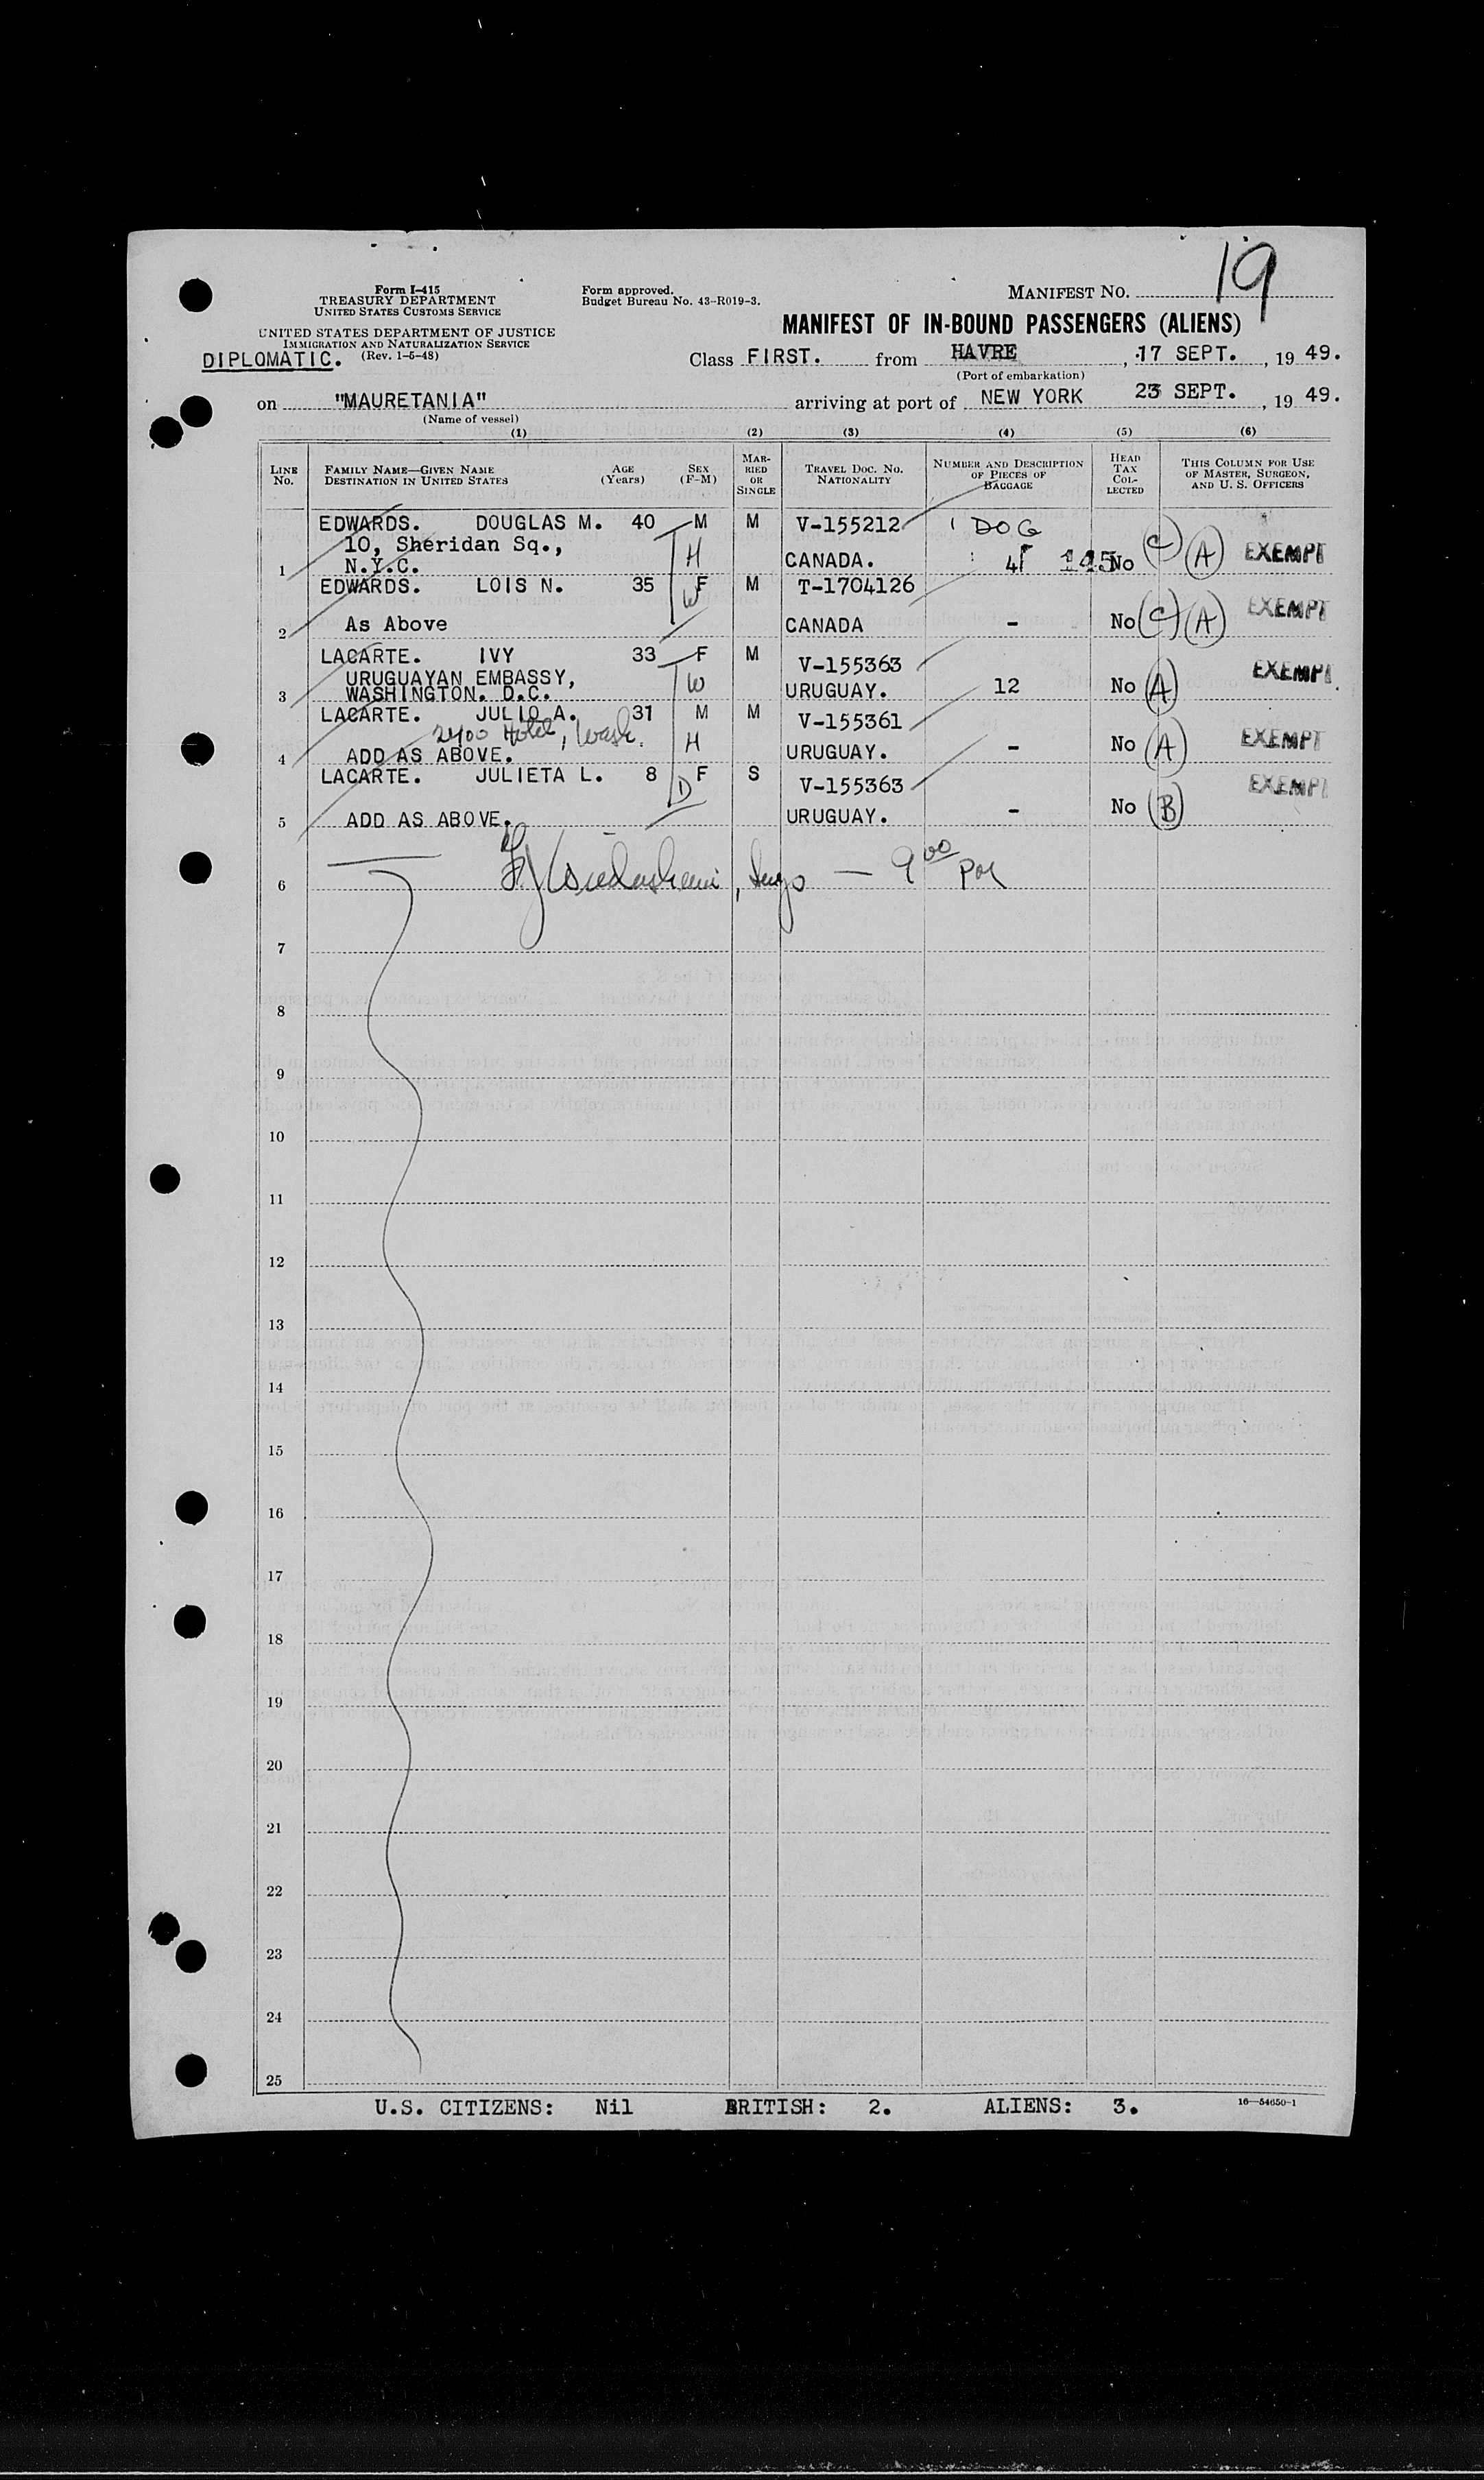 19
Form I-415
TREASURY DEPARTMENT
UNITED STATES CUSTOMS SERVICE
UNITED STATES DEPARTMENT OF JUSTICE
IMMIGRATION AND NATURALIZATION SERVICE
(Rev. 1-5-48)
DIPLOMATIC.
Form approved.
Budget Bureau No. 43-R019-3.
MANIFEST NO.
MANIFEST OF IN-BOUND PASSENGERS (ALIENS)
Class FIRST. from HAVRE, 17 SEPT., 19 49.
(Port of embarkation)
on "MAURETANIA" arriving at port of NEW YORK 23 SEPT., 19 49.
(Name of vessel)
(1) (2) (3) (4) (5) (6)
LINE No. FAMILY NAME—GIVEN NAME DESTINATION IN UNITED STATES AGE (Years) SEX (F-M) MARRIED OR SINGLE TRAVEL DOC. NO. NATIONALITY NUMBER AND DESCRIPTION OF PIECES OF BAGGAGE HEAD TAX COLLECTED THIS COLUMN FOR USE OF MASTER, SURGEON, AND U. S. OFFICERS
EDWARDS. DOUGLAS M. 40 M M V-155212 1 DOG
10, Sheridan Sq., H
1 N.Y.C. CANADA. 4 145 No (C) (A) EXEMPT
EDWARDS. LOIS N. 35 F M T-1704126
W
2 As Above CANADA - No (C) (A) EXEMPT
LACARTE. IVY 33 F M V-155363
URUGUAYAN EMBASSY, W
3 WASHINGTON. D.C. URUGUAY. 12 No (A) EXEMPT
LACARTE. JULIO A. 31 M M V-155361
2400 Hotel, Wash. H
4 ADD AS ABOVE. URUGUAY. - No (A) EXEMPT
LACARTE. JULIETA L. 8 F S V-155363
D
5 ADD AS ABOVE. URUGUAY. - No (B) EXEMPT
6 — 9 00
7
8
9
10
11
12
13
14
15
16
17
18
19
20
21
22
23
24
25
U.S. CITIZENS: Nil BRITISH: 2. ALIENS: 3.
16—54650-1